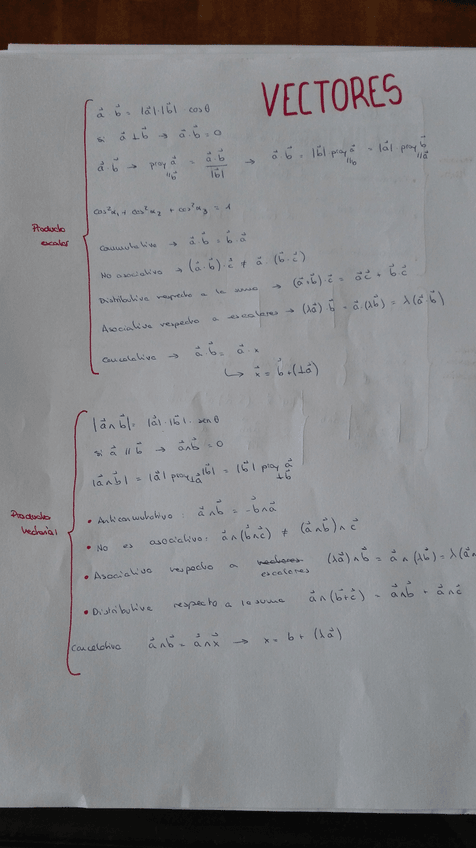 VECTORES
Producto escalar
a⃗ · b⃗ = |a⃗| · |b⃗| · cos θ
si a⃗ ⊥ b⃗ → a⃗ · b⃗ = 0
a⃗ · b⃗ → proy a⃗ //b⃗ = a⃗ · b⃗ / |b⃗| → a⃗ · b⃗ = |b⃗| · proy a⃗ //b⃗ = |a⃗| · proy b⃗ //a⃗
cos²α₁ + cos²α₂ + cos²α₃ = 1
Conmutativo → a⃗ · b⃗ = b⃗ · a⃗
No asociativo → (a⃗ · b⃗) · c⃗ ≠ a⃗ · (b⃗ · c⃗)
Distributiva respecto a la suma → (a⃗ + b⃗) · c⃗ = a⃗ c⃗ + b⃗ · c⃗
Asociativa respecto a escalares → (λa⃗) · b⃗ = a⃗ · (λb⃗) = λ(a⃗ · b⃗)
Cancelativa → a⃗ · b⃗ = a⃗ · x
↳ x⃗ = b⃗ + (⊥a⃗)
Producto Vectorial
|a⃗ ∧ b⃗| = |a⃗| · |b⃗| · sen θ
si a⃗ // b⃗ → a⃗ ∧ b⃗ = 0
|a⃗ ∧ b⃗| = |a⃗| proy ⊥a⃗ |b⃗| = |b⃗| proy a⃗ ⊥b⃗
• Anticonmutativo: a⃗ ∧ b⃗ = -b⃗ ∧ a⃗
• No es asociativo: a⃗ ∧ (b⃗ ∧ c⃗) ≠ (a⃗ ∧ b⃗) ∧ c⃗
• Asociativo respecto a escalares (λa⃗) ∧ b⃗ = a⃗ ∧ (λb⃗) = λ(a⃗ ∧
• Distributiva respecto a la suma a⃗ ∧ (b⃗ + c⃗) = a⃗ ∧ b⃗ + a⃗ ∧ c⃗
Cancelativa a⃗ ∧ b⃗ = a⃗ ∧ x⃗ → x = b + (λa⃗)